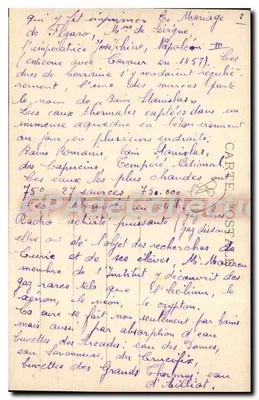 2
qui y fit imprimer Le Mariage
de Figaro, Mme de
l'impératrice Joséphine, Napoléon III
avec Cavour en 1857). Les
ducs de Lorraine s'y rendaient réguliè-
rement, l'une des sources porte
le nom de "Bain Stanislas".
Les eaux thermales captées dans un
immense aqueduc
au jour en plusieurs endroits.
Bains Romains, bain Stanislas,
des Capucins, Tempéré, National,
Les eaux les plus chaudes ont
75° 27 sources 750.000
Radio activité puissante (gaz
elles ont de l'objet des recherches de
Curie et de ses élèves, Mr Moureu
membre de l'Institut y découvrit des
gaz rares tels que l'hélium, le
xénon, le néon, le crypton.
La cure se fait non seulement par bains
mais aussi par absorption d'eau
buvettes des Arcades: eau des Dames,
eau Savonneuse, du Crucifix
buvettes des Grands Thermes: eau
d'Alliot.
CARTE POSTALE